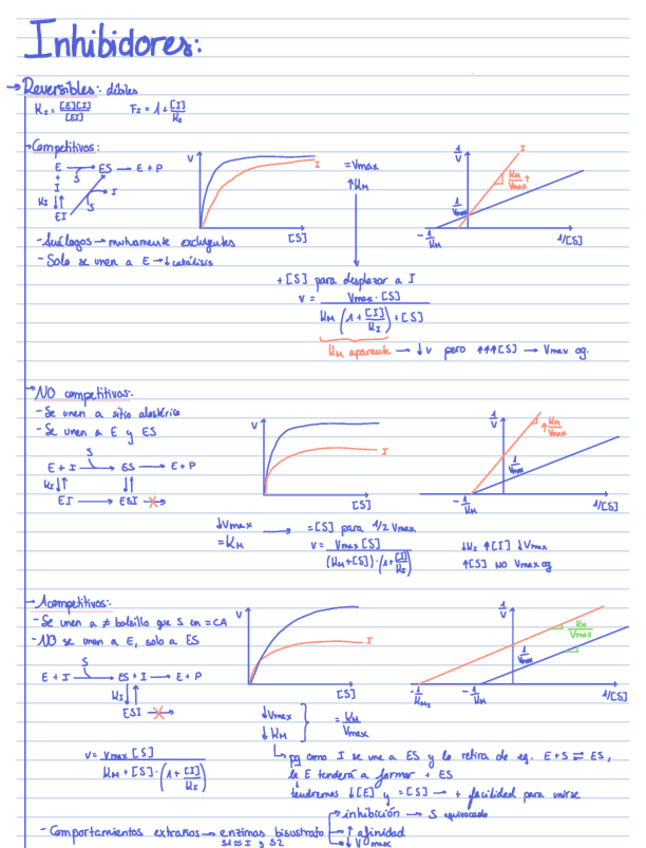 Inhibidores:
→ Reversibles: débiles
KI = [E][I]/[EI]    FI = 1 + [I]/KI
→ Competitivos:
E → ES → E + P
+
I    S    I
KI ↓↑    S
EI
V    I    [S]
= Vmax
↑ KM
1/V    I    KM/Vmax ↑    1/Vmax    -1/KM    1/[S]
- Análogos → mutuamente excluyentes
- Solo se unen a E → ↓ catálisis
+ [S] para desplazar a I
V = Vmax · [S] / KM (1 + [I]/KI) + [S]
KM aparente → ↓ v pero ↑↑↑[S] → Vmax og.
→ NO competitivos:
- Se unen a sitio alostérico
- Se unen a E y ES
S
E + I → ES → E + P
KI ↓↑    ↓↑
EI → ESI →
V    I    [S]
1/V    ↑ KM/Vmax    1/Vmax    -1/KM    1/[S]
↓ Vmax → = [S] para 1/2 Vmax
= KM
V = Vmax [S] / (KM + [S]) · (1 + [I]/KI)
↓KI ↑[I] ↓Vmax
↑[S] NO Vmax og
→ Acompetitivos:
- Se unen a ≠ bolsillo que S en = CA
- NO se unen a E, solo a ES
S
E + I → ES + I → E + P
KI ↓↑
ESI →
V    I    [S]
1/V    KM/Vmax    1/Vmax    -1/KMI    -1/KM    1/[S]
↓ Vmax
↓ KM
= KM/Vmax
V = Vmax [S] / KM + [S] · (1 + [I]/KI)
pq como I se une a ES y lo retira de eq. E + S ⇌ ES,
la E tenderá a formar + ES
tendremos ↓[E] y = [S] → + facilidad para unirse
- Comportamientos extraños → enzimas bisustrato
S1 ≈ I y S2
→ inhibición → S equivocado
→ ↑ afinidad
→ ↓ Vmax